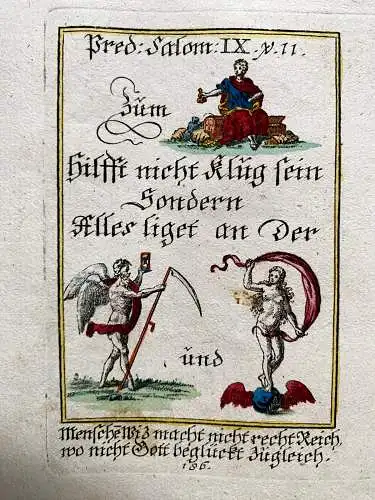 Pred: Salom: IX. v. 11.
Züm
Hilfft nicht Klüg sein
Sondern
Alles liget an Der
und
Menschē Wiz macht nicht recht Reich,
wo nicht Gott beglückt Zügleich.
186.